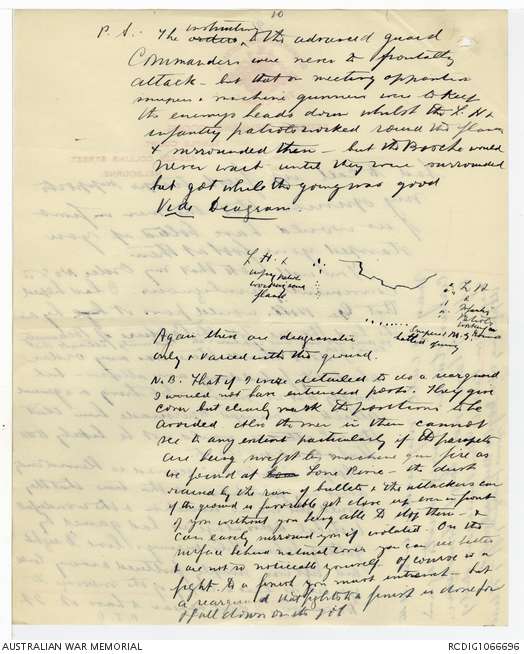 10
P.S.: The instructions orders to the advanced guard
Commanders were never to frontally
attack – but that on meeting opposition
snipers & machine gunners were to keep
the enemys heads down whilst the L.H. &
infantry patrols worked round the flanks
& surrounded them – but the Booche would
never wait until they were surrounded
but got whilst the going was good
Vide Diagram.
L.H. &
infy patrol
working round
flank
L.H.
&
Infantry
patrols
working
Snipers M.G. & Lewis
Again these are diagramatic
only & varied with the ground.
N.B. That if I were detailed to do a rearguard
I would not have entrenched posts. They give
cover but clearly mark the positions to be
avoided also the men in them cannot
see to any extent particularly if the parapets
are being swept by machine gun fire as
we found at Lone Pine – the dust
caused by the rain of bullets & the attackers can
if the ground is favorable get close up even in front
of you without you being able to stop them – &
can easily surround you if isolated. On the
surface behind natural cover you can see better
& are not so noticeable yourself of course in a
fight to a finish you must entrench – but
a rearguard that fights to a finish is done for
& all down on its job
AUSTRALIAN WAR MEMORIAL
RCDIG1066696